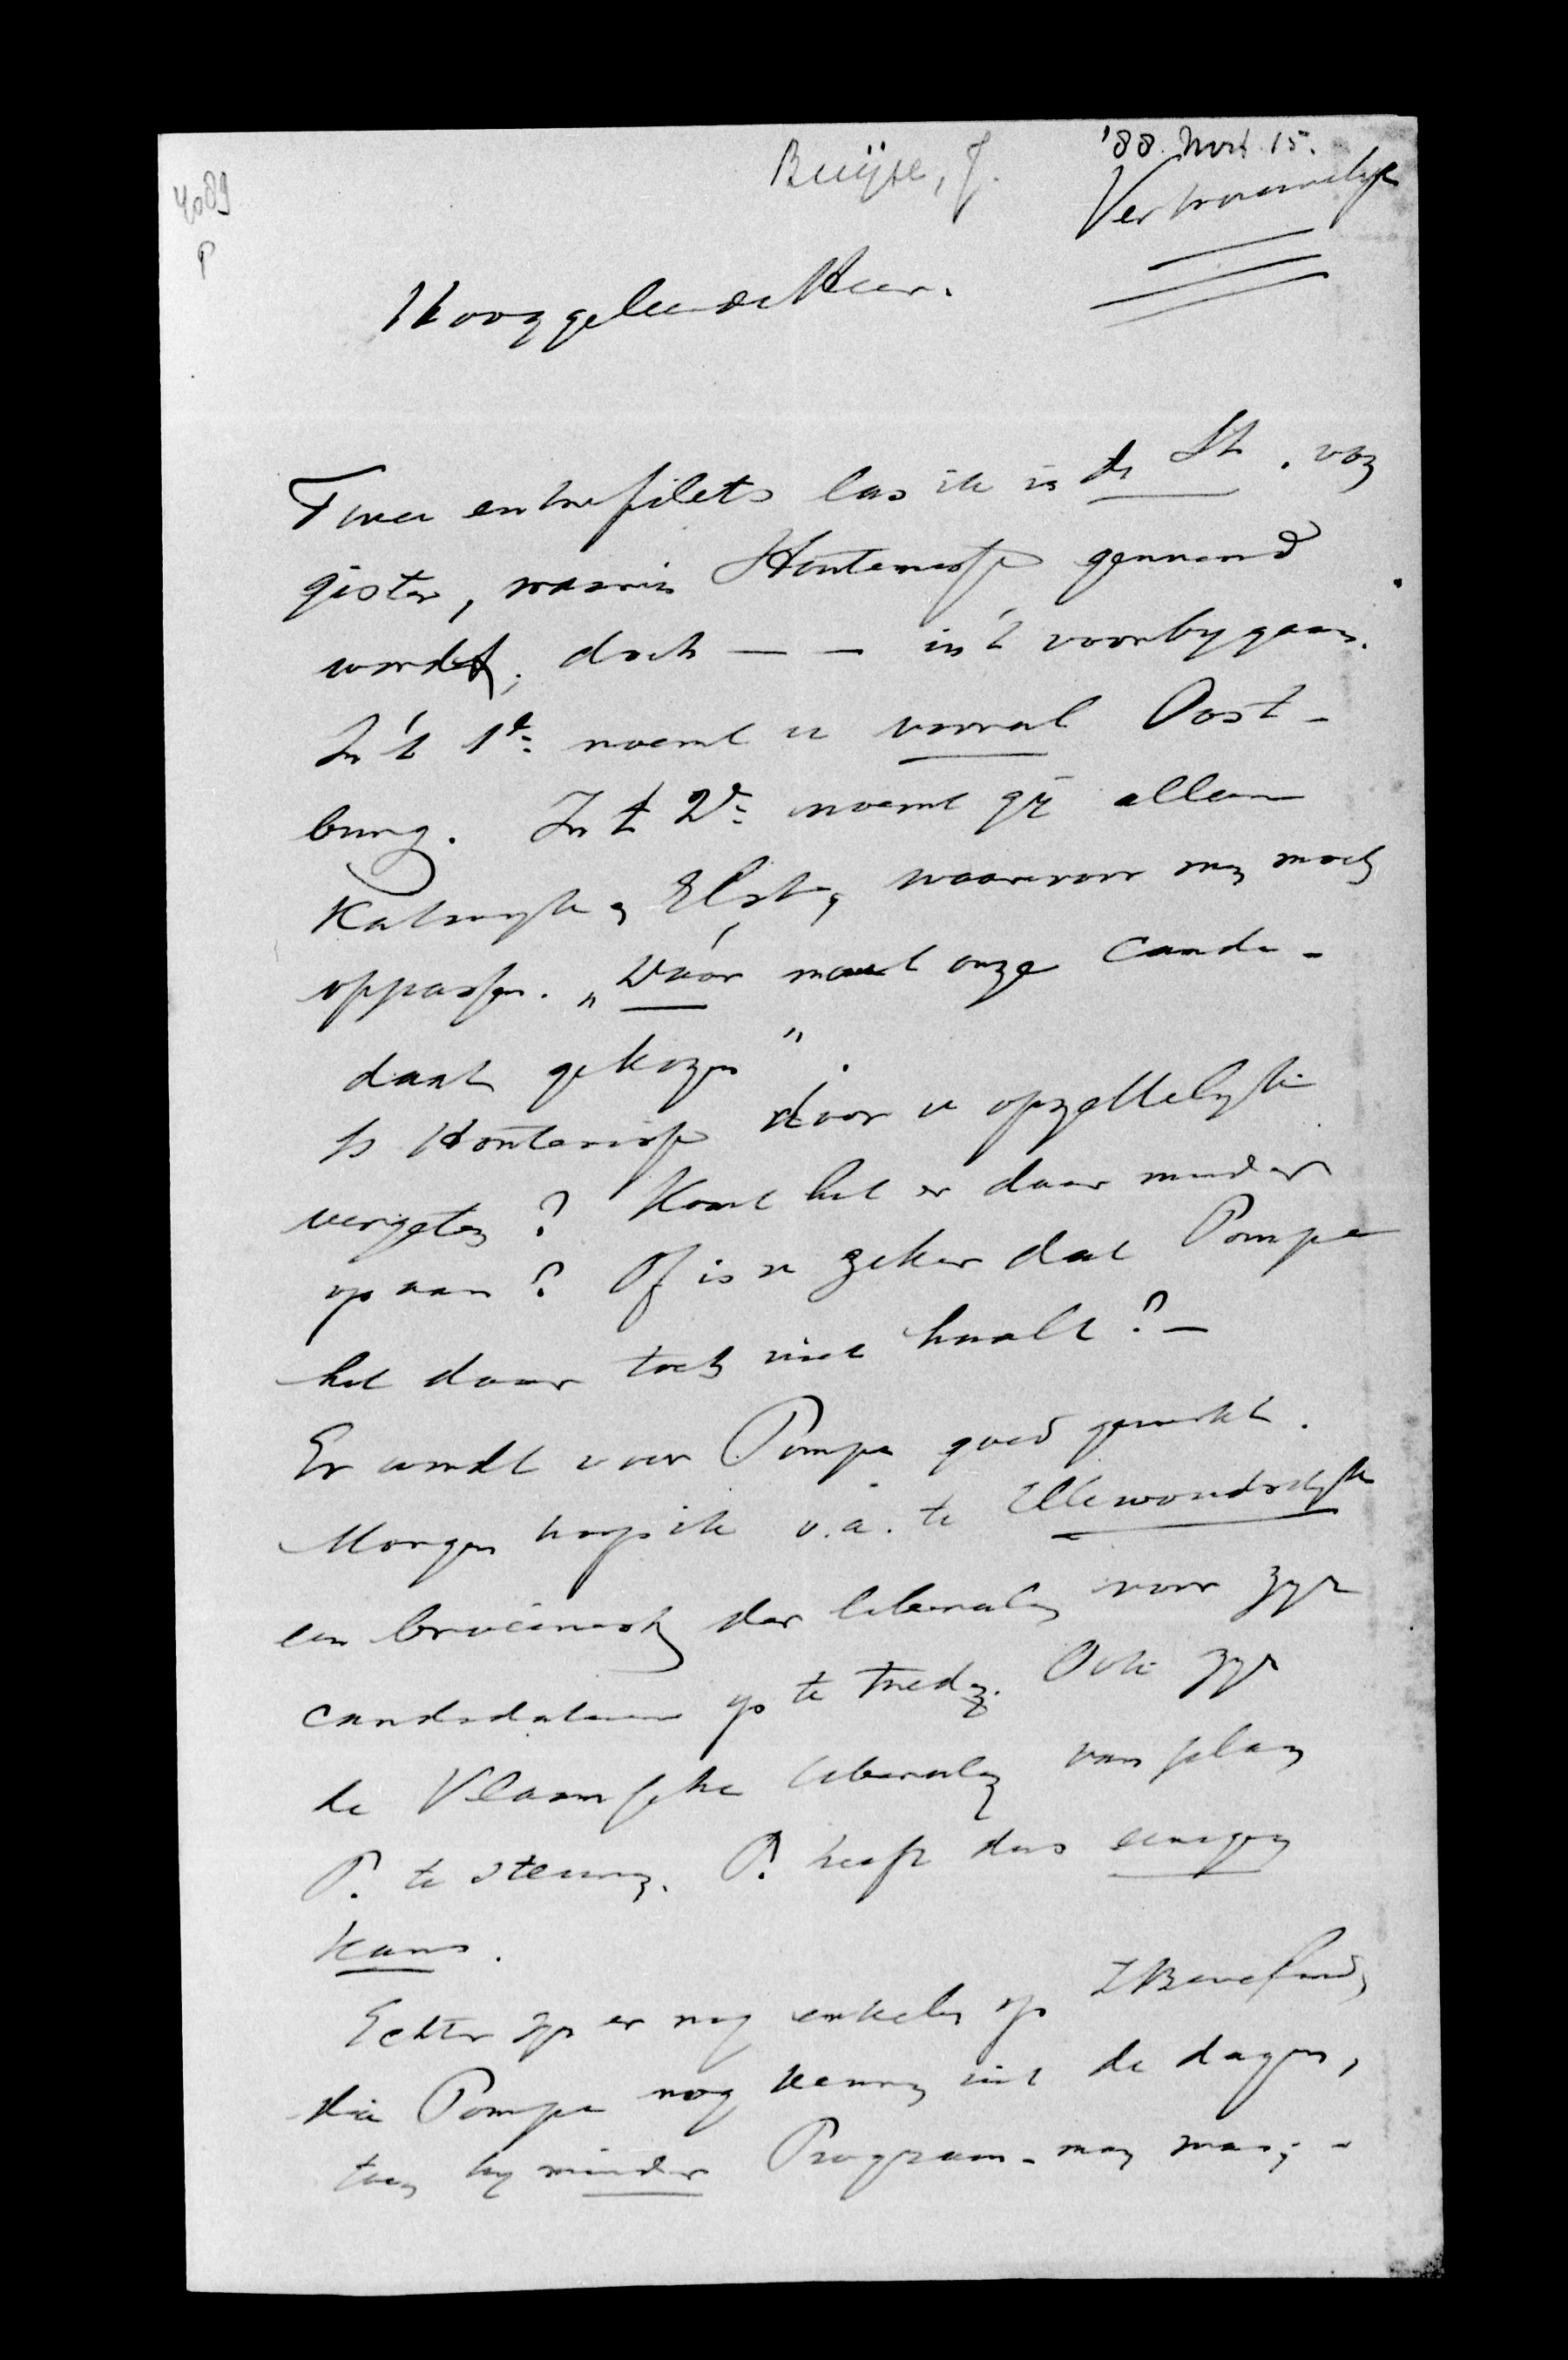 4089
P
Buijse, J.
'88. Mrt. 15.
Vertrouwelijk
Hooggeleerde Heer.
Twee entrefilets las ik in de St. van
gister, waarin Hontenisse genoemd
wordt, doch — — in 't voorbijgaan.
In 't 1e noemt u vooral Oost-
burg. In 't 2e noemt gij alleen
Katwijk, Elst, waarvoor men moet
oppassen. „Dáár moet onze Candi-
daat gekozen".
Is Hontenisse door u opzettelijk
vergeten? Komt het er daar minder
op aan? Of is u zeker dat Pompe
het daar toch niet haalt? —
Er wordt voor Pompe goed gewerkt.
Morgen hoop ik o.a. te Ellewoudsdijk
een der liberalen voor zijn
candidatuur op te treden. Ook zijn
de Vlaamsche liberalen van plan
P. te steunen. P. heeft dus eenigen
kans.
Echter zijn er nog enkelen op Z. Beveland,
die Pompe nog kennen uit de dagen,
toen hij minder Program-man was; -